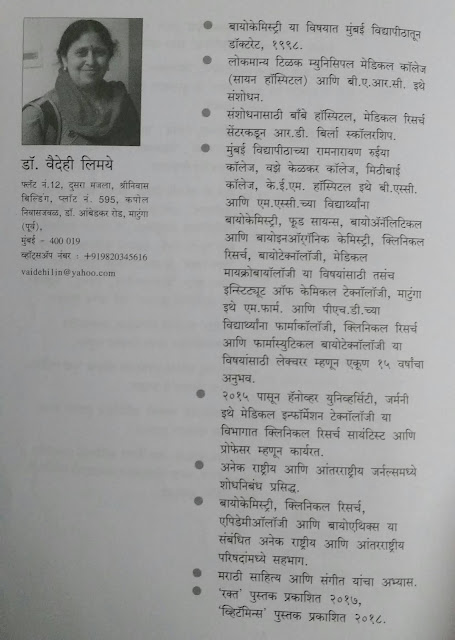 डॉ. वैदेही लिमये
फ्लॅट नं.12, दुसरा मजला, श्रीनिवास
बिल्डिंग, प्लॉट नं. 595, कपोल
निवासजवळ, डॉ. आंबेडकर रोड, माटुंगा
(पूर्व),
मुंबई - 400 019
व्हॉट्सअॅप नंबर : +919820345616
vaidehi1in@yahoo.com
● बायोकेमिस्ट्री या विषयात मुंबई विद्यापीठातून
डॉक्टरेट, १९९८.
● लोकमान्य टिळक म्युनिसिपल मेडिकल कॉलेज
(सायन हॉस्पिटल) आणि बी.ए.आर.सी. इथे
संशोधन.
● संशोधनासाठी बाँबे हॉस्पिटल, मेडिकल रिसर्च
सेंटरकडून आर.डी. बिर्ला स्कॉलरशिप.
● मुंबई विद्यापीठाच्या रामनारायण रुईया
कॉलेज, वझे केळकर कॉलेज, मिठीबाई
कॉलेज, के.ई.एम. हॉस्पिटल इथे बी.एस्सी.
आणि एम.एस्सी.च्या विद्यार्थ्यांना
बायोकेमिस्ट्री, फूड सायन्स, बायोअॅनॅलिटिकल
आणि बायोइनऑर्गॅनिक केमिस्ट्री, क्लिनिकल
रिसर्च, बायोटेक्नॉलॉजी, मेडिकल
मायक्रोबायॉलॉजी या विषयांसाठी तसंच
इन्स्टिट्यूट ऑफ केमिकल टेक्नॉलॉजी, माटुंगा
इथे एम.फार्म. आणि पीएच.डी.च्या
विद्यार्थ्यांना फार्माकॉलॉजी, क्लिनिकल रिसर्च
आणि फार्मास्युटिकल बायोटेक्नॉलॉजी या
विषयांसाठी लेक्चरर म्हणून एकूण १५ वर्षांचा
अनुभव.
● २०१५ पासून हॅनोव्हर युनिव्हर्सिटी, जर्मनी
इथे मेडिकल इन्फॉर्मेशन टेक्नॉलॉजी या
विभागात क्लिनिकल रिसर्च सायंटिस्ट आणि
प्रोफेसर म्हणून कार्यरत.
● अनेक राष्ट्रीय आणि आंतरराष्ट्रीय जर्नल्समध्ये
शोधनिबंध प्रसिद्ध.
● बायोकेमिस्ट्री, क्लिनिकल रिसर्च,
एपिडेमीऑलॉजी आणि बायोएथिक्स या
संबंधित अनेक राष्ट्रीय आणि आंतरराष्ट्रीय
परिषदांमध्ये सहभाग.
● मराठी साहित्य आणि संगीत यांचा अभ्यास.
● 'रक्त' पुस्तक प्रकाशित २०१७,
'व्हिटॅमिन्स' पुस्तक प्रकाशित २०१८.